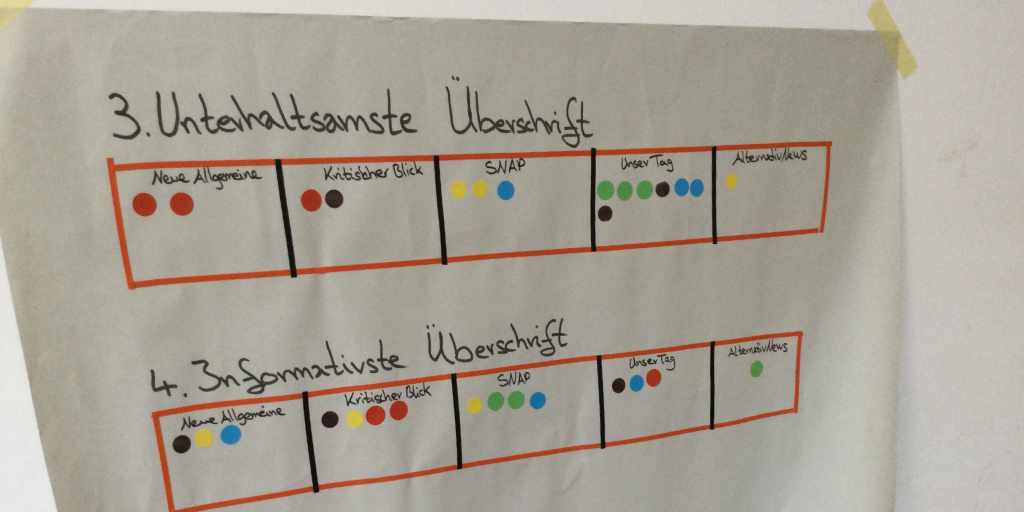 3. Unterhaltsamste Überschrift
Neue Allgemeine Kritischer Blick SNAP Unser Tag AlternativNews
4. Informativste Überschrift
Neue Allgemeine Kritischer Blick SNAP Unser Tag AlternativNews